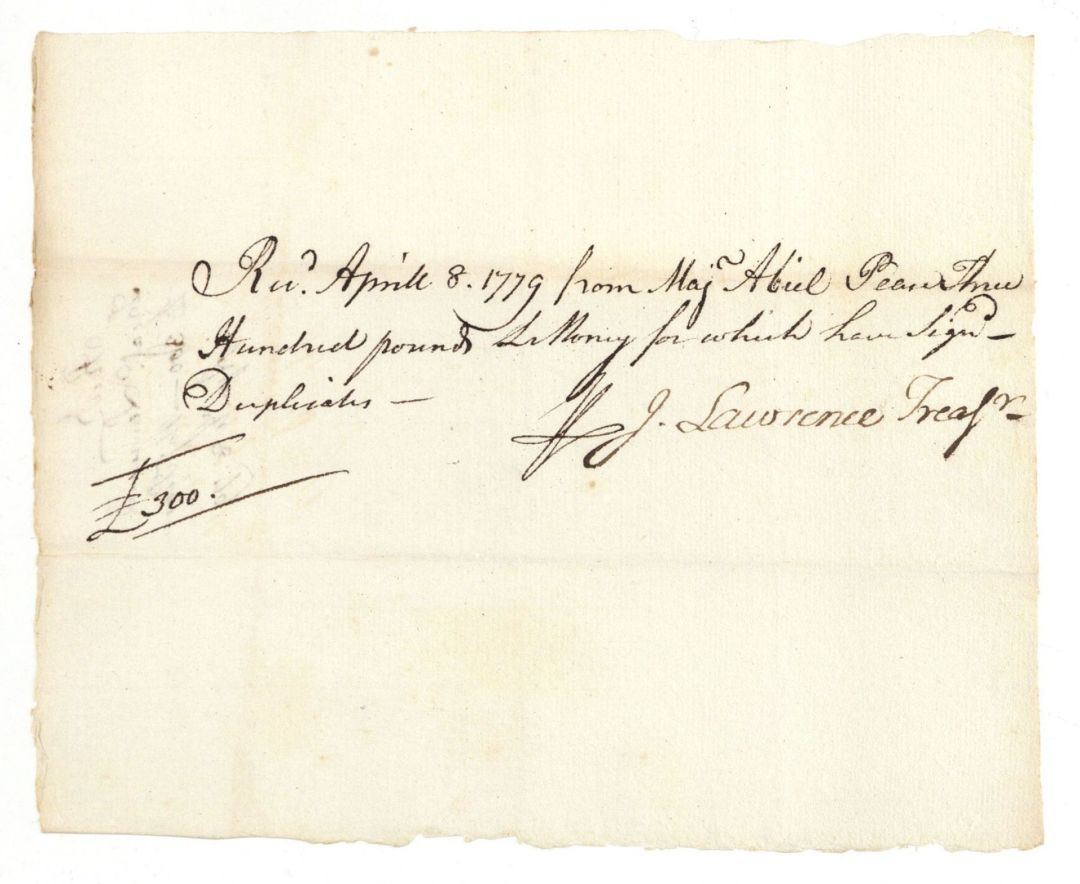 Recd. Aprill 8. 1779 from Majr Abiel Pease Three
Hundred pounds L Money for which have Signd —
Duplicates —
J. Lawrence Treasr
£300.